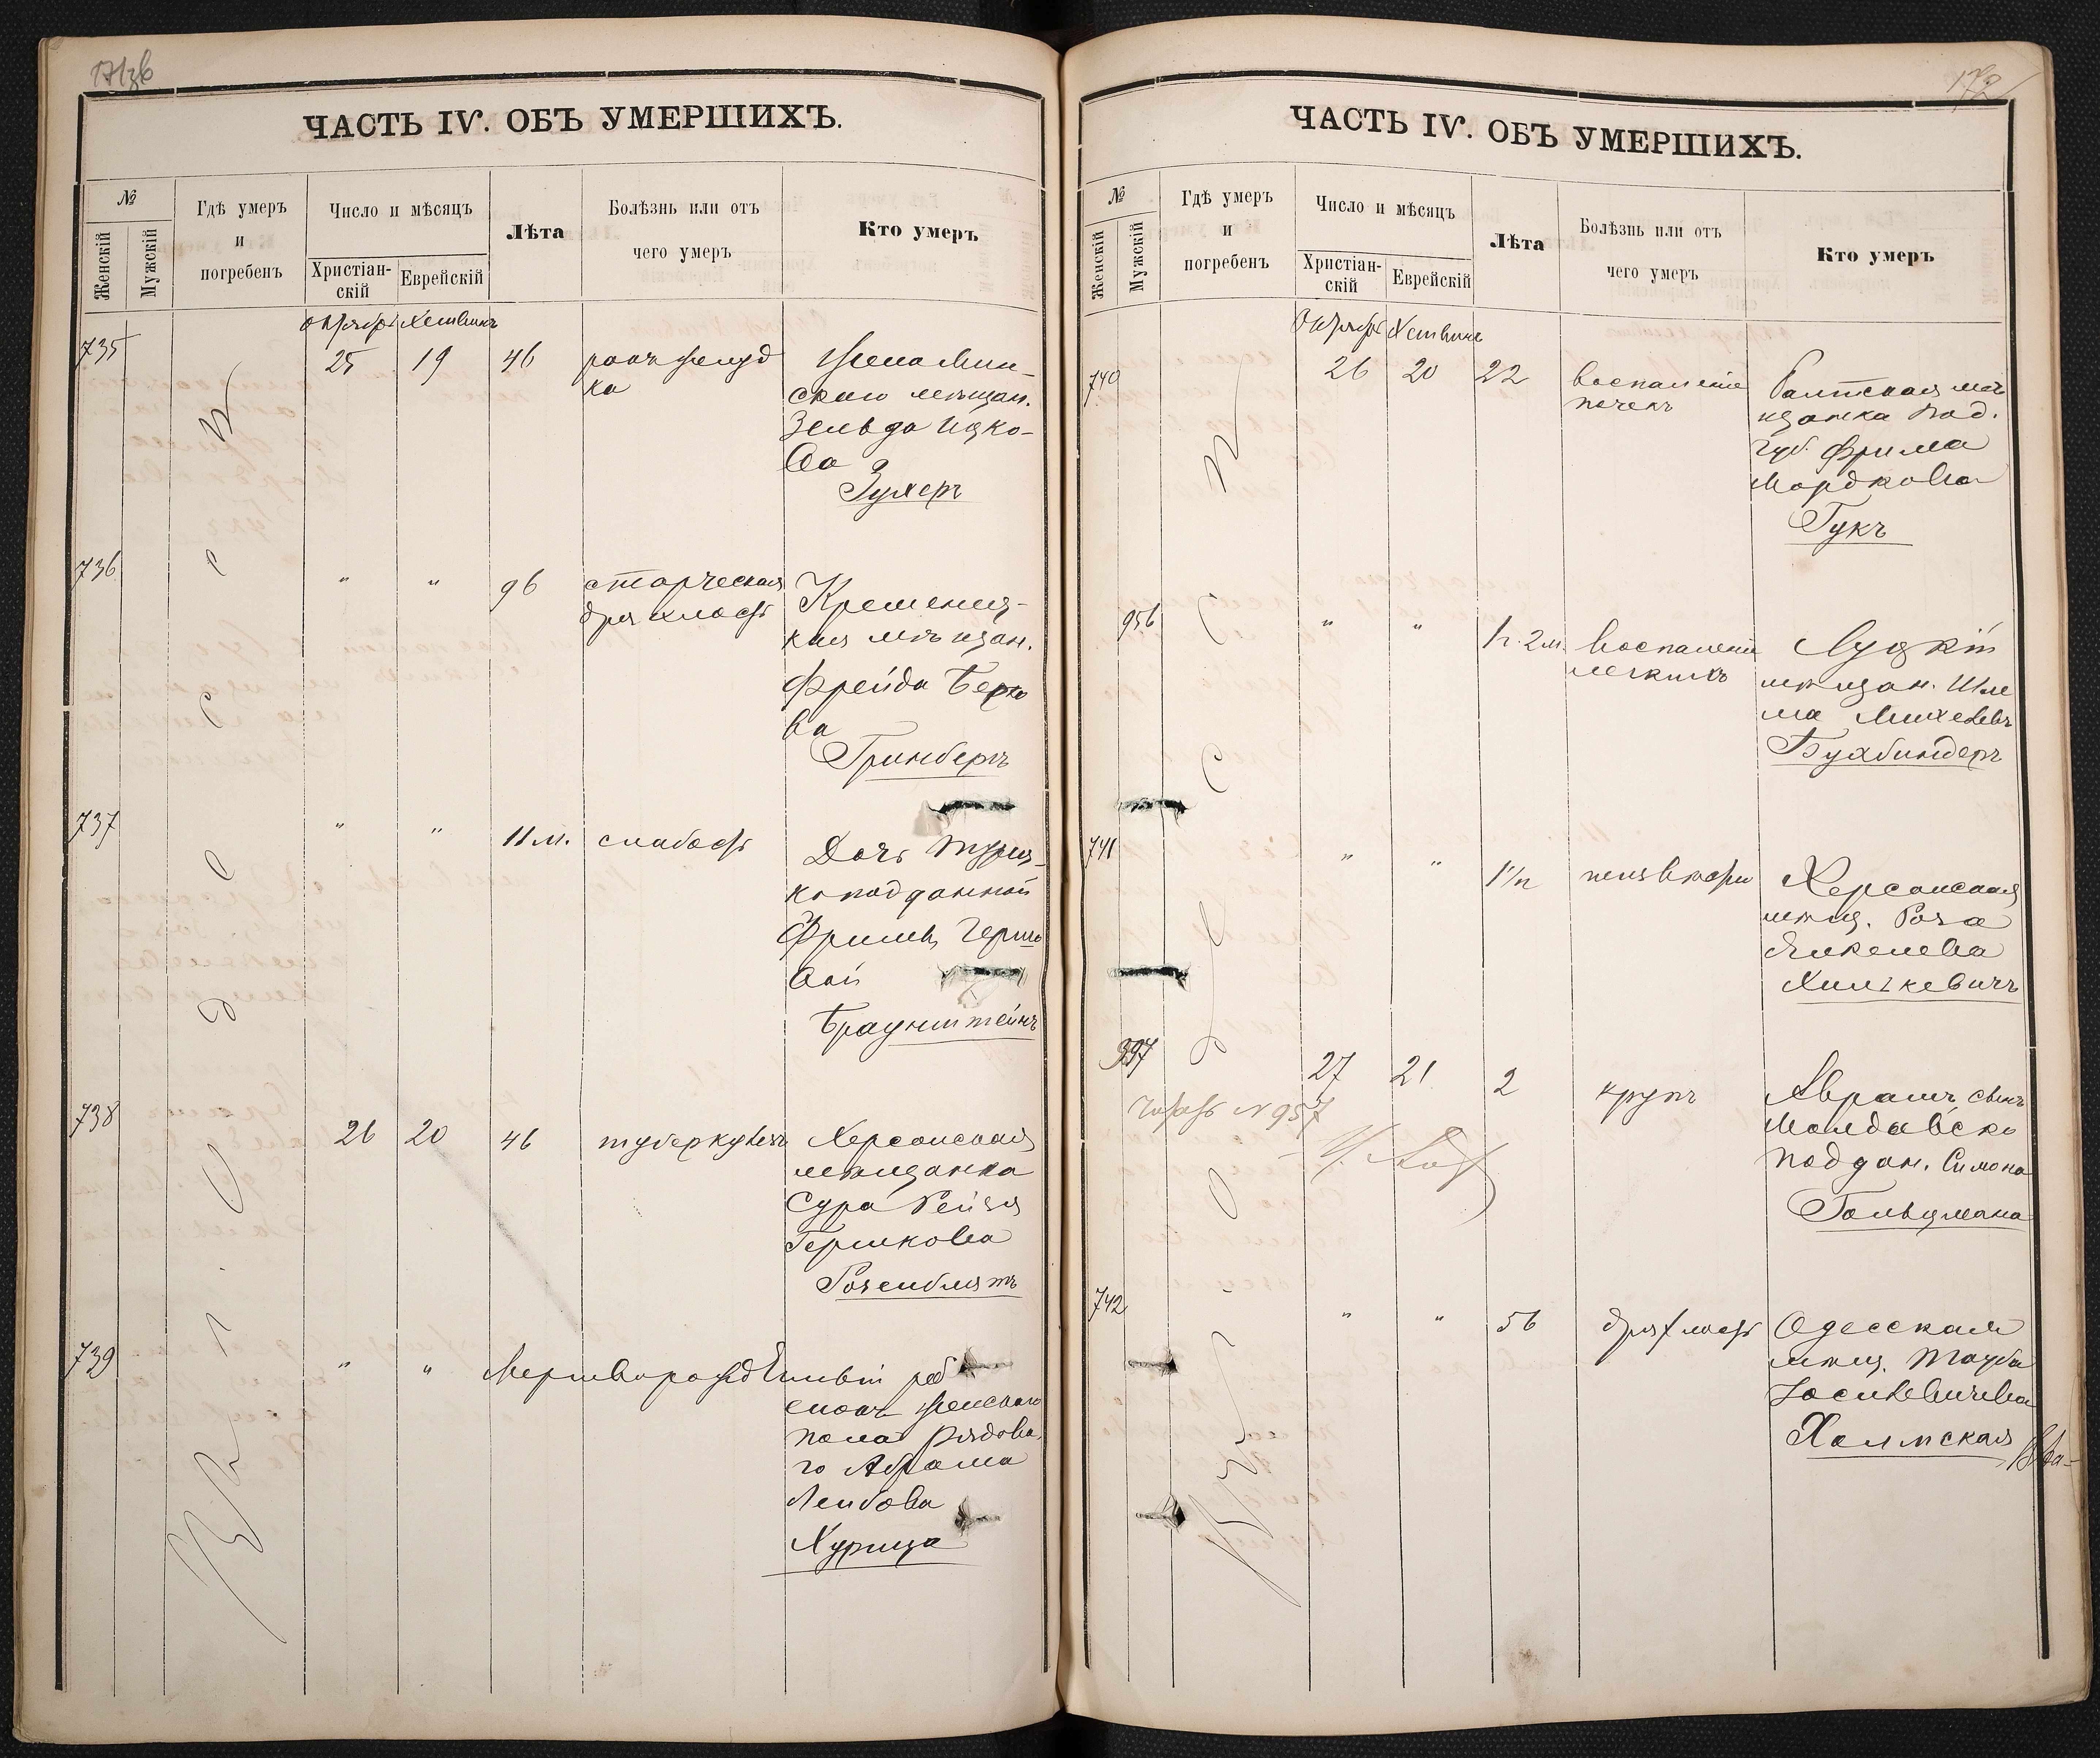 171об
ЧАСТЬ IV. ОБЪ УМЕРШИХЪ.
№
Женскій
Мужскій
Гдѣ умеръ
и
погребенъ
Число и мѣсяцъ
Христіан-
скій
Еврейскій
Лѣта
Болѣзнь или отъ
чего умеръ
Кто умеръ
Октябрь Хешвинъ
735
25 19 46 ракъ желуд
ка
Жена Мин-
скаго мѣщан.
Зельда Ицко-
ва
Зухеръ
736
" " 96 старческая
дряхлость
Кременец-
кая мѣщан.
Фрейда Берко
ва
Гринбергъ
737
" " 11 м. слабость
Дочь турец-
ко подданной
Фримы Гершко
вой
Браунштейнъ
738
26 20 46 туберкулезъ
Херсонская
мѣщанка
Сура Рейзя
Гершкова
Розенблятъ
739
" " Мертворожденный реб
енокъ женскаго
пола рядова
го Абрама
Лейбова
Хурица
Въ г. Одессѣ
172
ЧАСТЬ IV. ОБЪ УМЕРШИХЪ.
№
Женскій
Мужскій
Гдѣ умеръ
и
погребенъ
Число и мѣсяцъ
Христіан-
скій
Еврейскій
Лѣта
Болѣзнь или отъ
чего умеръ
Кто умеръ
Октябрь Хешвинъ
740
26 20 22 воспаленіе
почекъ
Балтская мѣ
щанка Под.
губ. Фрима
Мордкова
Гукъ
956
" " 1 г. 2 м. воспаленіе
легкихъ
Луцкій
мѣщан. Шле
ма Михелевъ
Бухбиндеръ
741
" " 1 1/2 неизвѣстно
Херсонская
мѣщ. Роза
Янкелева
Хилькевичъ
957
27 21 2 крупъ
Аврамъ сынъ
Молдавско
поддан. Симона
Гольцмана
читать № 957
742
" " 56 дряхлость
Одесская
мѣщ. Тауба
Іосилевичева
Холмская
Въ г. Одессѣ